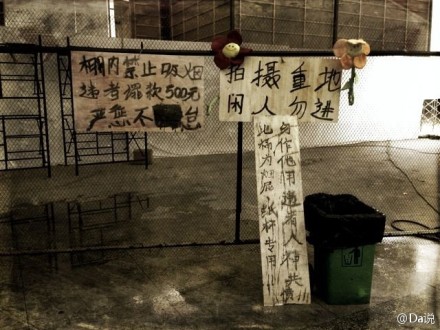 棚内禁止吸烟
违者罚款500元
严惩不
拍摄重地
闲人勿进
此桶为烟尾纸杯专用!!
另作他用违者人神共愤
@Da说